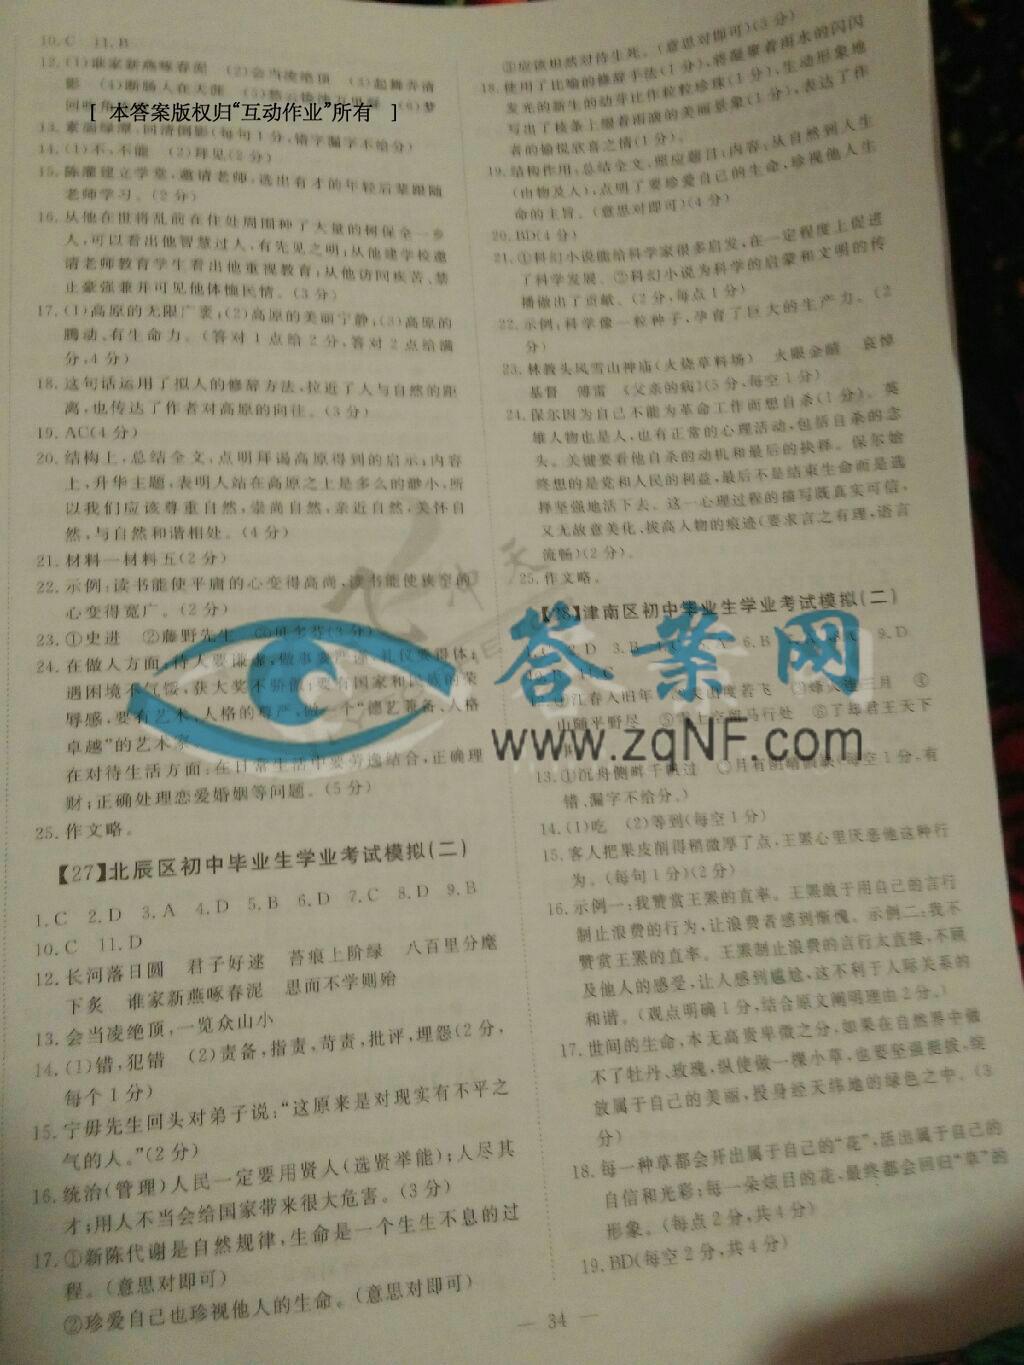 10.C 11.B
12.(1)谁家新燕啄春泥 (2)会当凌绝顶 (3)起舞弄清
影 (4)断肠人在天涯
[ 本答案版权归“互动作业”所有 ]
回清倒影(每句1分,错字漏字不给分)
14.(1)不,不能 (2)拜见(2分)
15.陈灌建立学堂,邀请老师,选出有才的年轻后辈跟随
老师学习。(2分)
16.从他在世将乱前在住处周围种了大量的树保全一乡
人,可以看出他智慧过人,有先见之明;从他建学校邀
请老师教育学生看出他重视教育;从他访问疾苦、禁
止豪强兼并可见他体恤民情。(3分)
17.(1)高原的无限广袤;(2)高原的美丽宁静;(3)高原的
腾动、有生命力。(答对1点给2分,答对2点给满
分,4分)
18.这句话运用了拟人的修辞方法,拉近了人与自然的距
离,也传达了作者对高原的向往。(3分)
19.AC(4分)
20.结构上,总结全文,点明拜谒高原得到的启示;内容
上,升华主题,表明人站在高原之上是多么的渺小,所
以我们应该尊重自然,崇尚自然,亲近自然,关怀自
然,与自然和谐相处。(4分)
21.材料一材料五(2分)
22.示例:读书能使平庸的心变得高尚,读书能使狭窄的
心变得宽广。(2分)
23.①史进 ②藤野先生
24.在做人方面:待人要谦虚,做事要严谨,礼仪要得体;
遇困境不气馁,获大奖不骄傲;要有国家和民族的荣
辱感,要有艺术、人格的尊严,做一个“德艺兼备、人格
卓越”的艺术家。
在对待生活方面:在日常生活中要劳逸结合,正确理
财;正确处理恋爱婚姻等问题。(5分)
25.作文略。
【27】北辰区初中毕业生学业考试模拟(二)
1.C 2.D 3.A 4.D 5.B 6.D 7.C 8.D 9.B
10.C 11.D
12.长河落日圆 君子好逑 苔痕上阶绿 八百里分麾
下炙 谁家新燕啄春泥 思而不学则殆
13.会当凌绝顶,一览众山小
14.(1)错,犯错 (2)责备,指责,苛责,批评,埋怨(2分,
每个1分)
15.宁毋先生回头对弟子说:“这原来是对现实有不平之
气的人。”(2分)
16.统治(管理)人民一定要用贤人(选贤举能);人尽其
才;用人不当会给国家带来很大危害。(3分)
17.①新陈代谢是自然规律,生命是一个生生不息的过
程。(意思对即可)
②珍爱自己也珍视他人的生命。(意思对即可)
③应该坦然对待生死。(意思对即可)(3分)
18.使用了比喻的修辞手法(1分),将凝聚着雨水的闪闪
发光的新生的幼芽比作粒粒珍珠(1分),生动形象地
写出了枝条上缀着雨滴的美丽景象(1分),表达了作
者的愉悦欣喜之情(1分)。
19.结构作用:总结全文,照应题目;内容:从自然到人生
(由物及人),点明了要珍爱自己的生命,珍视他人生
命的主旨。(意思对即可)(4分)
20.BD(4分)
21.①科幻小说能给科学家很多启发,在一定程度上促进
了科学发展。②科幻小说为科学的启蒙和文明的传
播做出了贡献。(2分,每点1分)
22.示例:科学像一粒种子,孕育了巨大的生产力。(2
分)
23.林教头风雪山神庙(火烧草料场) 火眼金睛 哀悼
基督 傅雷 《父亲的病》(5分,每空1分)
24.保尔因为自己不能为革命工作而想自杀(1分)。英
雄人物也是人,也有正常的心理活动,包括自杀的念
头。关键要看他自杀的动机和最后的抉择。保尔始
终想的是党和人民的利益,最后不是结束生命而是选
择坚强地活下去。这一心理过程的描写既真实可信,
又无故意美化、拔高人物的痕迹(要求言之有理,语言
流畅)(2分)。
25.作文略。
【28】津南区初中毕业生学业考试模拟(二)
9.D
①江春入旧年
山随平野尽 ⑥了却君王天下
13.①沉舟侧畔千帆过 (每空1分,有
错、漏字不给分。)
14.(1)吃 (2)等到(每空1分)
15.客人把果皮削得稍微厚了点,王罴心里厌恶他这种行
为。(每句1分)(2分)
16.示例一:我赞赏王罴的直率。王罴敢于用自己的言行
制止浪费的行为,让浪费者感到惭愧。示例二:我不
赞赏王罴的直率。王罴制止浪费的言行太直接,不顾
及他人的感受,让人感到尴尬,这不利于人际关系的
和谐。(观点明确1分,结合原文阐明理由2分。)
17.世间的生命,本无高贵卑微之分,如果在自然界中做
不了牡丹、玫瑰,纵使做一棵小草,也要坚强挺拔,绽
放属于自己的美丽,投身经天纬地的绿色之中。(3
分)
18.每一种草都会开出属于自己的“花”,活出属于自己的
自信和光彩;每一朵炫目的花,最终都会回归“草”的
形象。(每点2分,共4分)
19.BD(每空2分,共4分)
— 34 —
答案网
www.zqNF.com